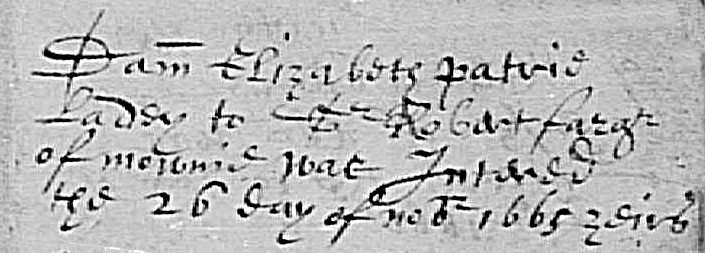 Dam Elizabeth patrie
Ladey to Sr Robert farqr
of mownie was Interred
the 26 day of nobr 1665 zeirs